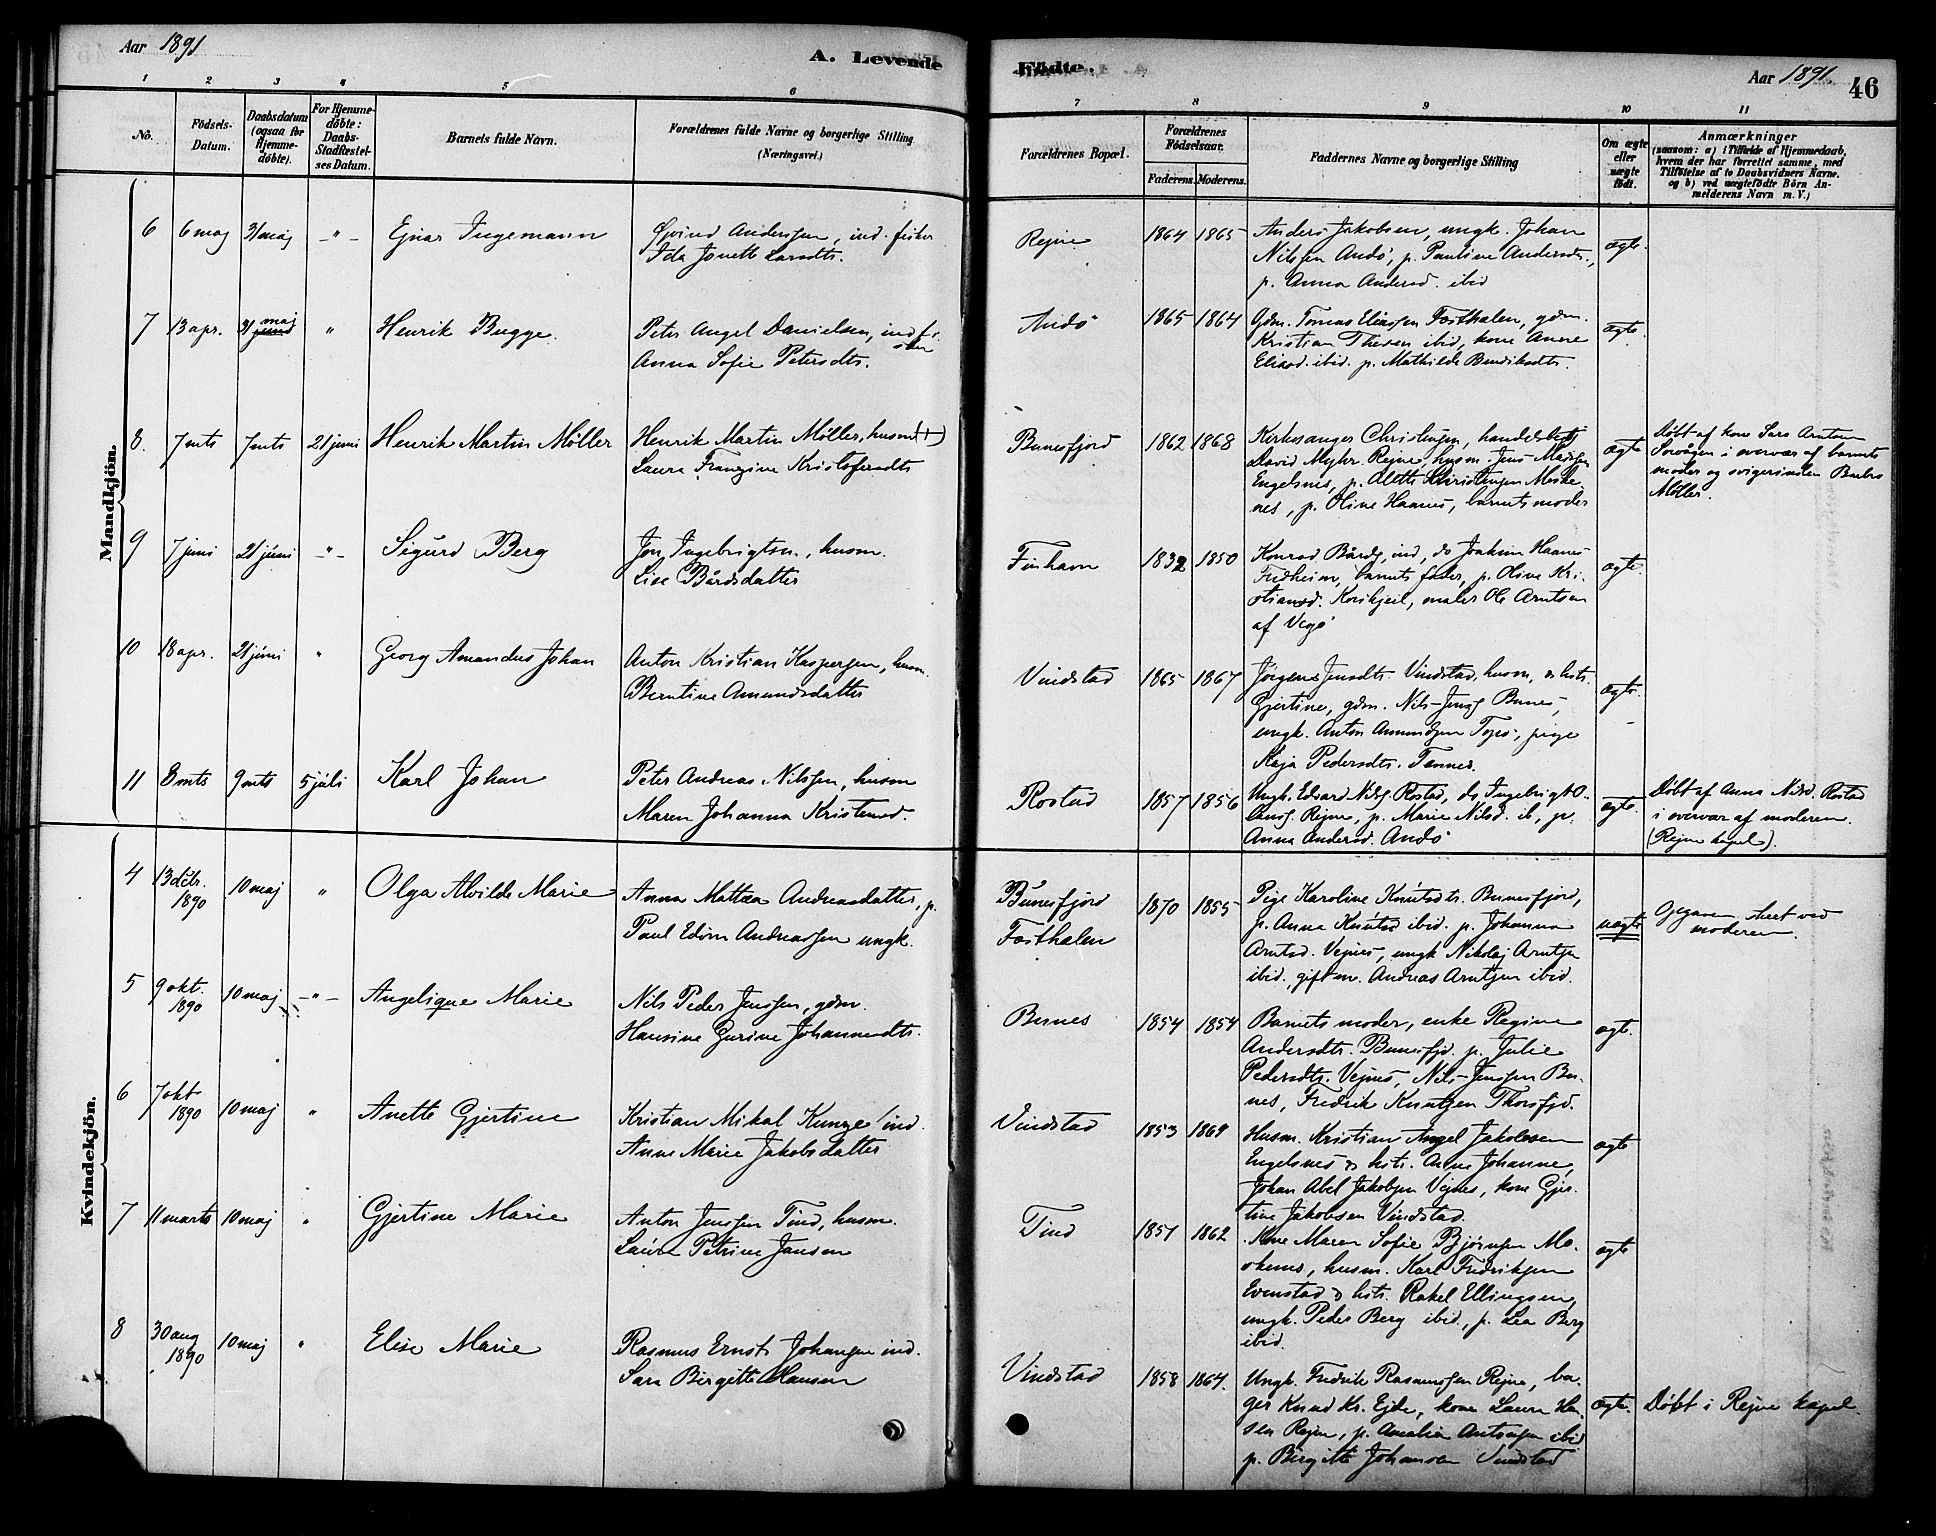 Aar 1891
A. Levende
Födte.
Aar 1891.
46
1 2 3 4 5 6 7 8 9 10 11
No.
Födsels-
Datum.
Daabsdatum
(ogsaa for
Hjemme-
döbte).
For Hjemme-
döbte:
Daabs-
Stadfæstel-
ses Datum.
Barnets fulde Navn.
Forældrenes fulde Navne og borgerlige Stilling
(Næringsvei.)
Forældrenes Bopæl.
Forældrenes
Födselsaar.
Faderens. Moderens.
Faddernes Navne og borgerlige Stilling
Om ægte
eller
uægte
födt.
Anmærkninger
(saasom: a) i Tilfælde af Hjemmedaab,
hvem der har forrettet samme, med
Tilföielse af to Daabsvidners Navne.
og b) ved uægtefödte Börn An-
melderens Navn m. V.)
Mandkjön.
6 6 maj 31 maj -"- Ejnar Ingemann
Øjvind Anderssen, ind. fisker
Ida Jonette Larsdtr.
Rejne 1864 1865
Anders Jakobsen, ungk. Johan
Nilssen Andö, p. Pauline Andersdtr.,
p. Anna Andersd. ibid
ægte.
7 13 apr. 31 maj juni " Henrik Bugge.
Peter Angel Danielsen, ind. fi-
sker
Anna Sofie Petersdtr.
Andö 1865 1864
Gdm. Tomas Eliassen Fosthalen, gdm.
Kristian Thesen ibid, kone Anne
Eliasd. ibid. p. Mathilde Bendiksdtr.
ægte.
8. 7 mts 7 mts 21 juni Henrik Martin Möller
Henrik Martin Möller, husm (+)
Laura Franzine Kristofersdtr
Bunesfjord 1862 1868
Kirkesanger Christensen, handelsbetj.
David Myhr. Rejne, husm. Jens Madssen
Engelsnes, p. Alette Christensen Moske-
nes, p. Oline Haanes, barnets moder
ægte
Döbt af kone Sara Arntsen
Sorvågen i overvær af barnets
moder og svigerinden Barbro
Möller.
9 7 juni 21 juni -"- Sigurd Berg
Jon Ingebrigtsn., husm.
Lise Bårdsdatter
Finhavn 1832 1850
Konrad Bårds., ind., do Joakim Haanes
Fredheim, barnets fader, p. Oline Kri-
stiansd. Korikjeil, maler Ole Arntsen
af Vegö
ægte.
10 18 apr. 21 juni " Georg Amandus Johan
Anton Kristian Kaspersen, husm.
Berntine Amundsdatter
Vindstad 1865 1867
Jörgen Jensdtr. Vindstad, husm, & hstr.
Gjertine, gdm. Nils Jenss. Bunes,
ungk. Anton Amundsen Topö, pige
Kaja Pedersdtr. Tennes.
ægte.
11 8 mts 9 mts 5 juli Karl Johan
Peter Andreas Nilssen, husm
Maren Johanna Kristensd.
Rostad 1857 1856
Ungk. Edvard Nilss. Rostad, do Ingebrigt O-
lauss. Rejne, p. Marie Nilsd. ib, p.
Anna Andersd. Andö
ægte
Döbt af Anna Nilsd. Rostad
i overvær af moderen.
(Rejne kapel).
Kvindekjön.
4 13 dcbr. 1890 10 maj " Olga Alvilde Marie
Anna Mattea Andreasdatter, p.
Paul Edvin Andreassen ungk.
Bunesfjord
Fosthalen
1870 1855
Pige Karoline Knutsdtr. Bunesfjord,
p. Anna Knutsd ibid. p. Johanna
Arntsd. Vejnes, ungk Nikolaj Arntsen
ibid., gift m. Andreas Arntsen ibid.
uægte
Opgaven skeet ved
moderen.
5 9 okt. 1890 10 maj -"- Angelique Marie
Nils Peder Jenssen, gdm.
Hansine Gurine Johannesdtr.
Bunes 1854 1854
Barnets moder, enke Regine
Andersdtr. Bunesfjd. p. Julie
Pedersdtr. Vejnes, Nils Jenssen Bu-
nes, Fredrik Knutzen Thorsfjd.
ægte.
6 7 okt 1890 10 maj " Anette Gjertine
Kristian Mikal Kunze ind.
Anne Marie Jakobsdatter
Vindstad 1853 1869
Husm. Kristian Angel Jakobsen
Engelsnes & hstr. Anne Johanne,
Johan Abel Jakobsen Vejnes, kone Gjer-
tine Jakobsen Vindstad.
ægte
7 11 marts 10 maj " Gjertine Marie
Anton Jenssen Tind, husm.
Laura Petrine Jansen
Tind 1857 1862
Kone Maren Sofie Björnsen Mo-
skenes, husm. Karl Fredriksen
Evenstad & hstr. Rakel Ellingsen,
ungk. Peder Berg ibid, p. Lea Berg
ibid.
ægte
8 30 aug 1890 10 maj " Elise Marie
Rasmus Ernst Johansen ind.
Sara Birgitte Hansen
Vindstad 1858 1864.
Ungk. Fredrik Rasmussen Rejne, ba-
ger Knud Kr. Ejde, kone Laura Han-
sen Rejne, p. Amalia Antonsen ibid
p. Birgitte Johansen Vindstad
ægte.
Döbt i Rejne kapel.